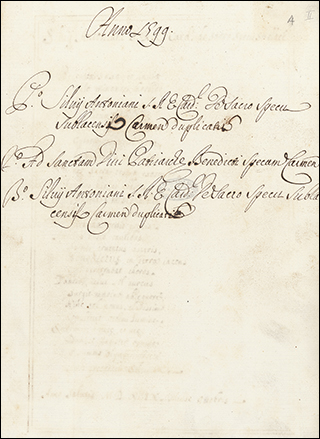 4
Anno 1599.
Silvij Antoniani S. R. E. Card: De Sacro Specu
Sublacensi Carmen duplicatū
Ad Sanctam Divi Patriarchæ Benedicti Specum Carmen
Silvij Antoniani S. R. E. Card: De Sacro Specu Subla
censi Carmen duplicatū